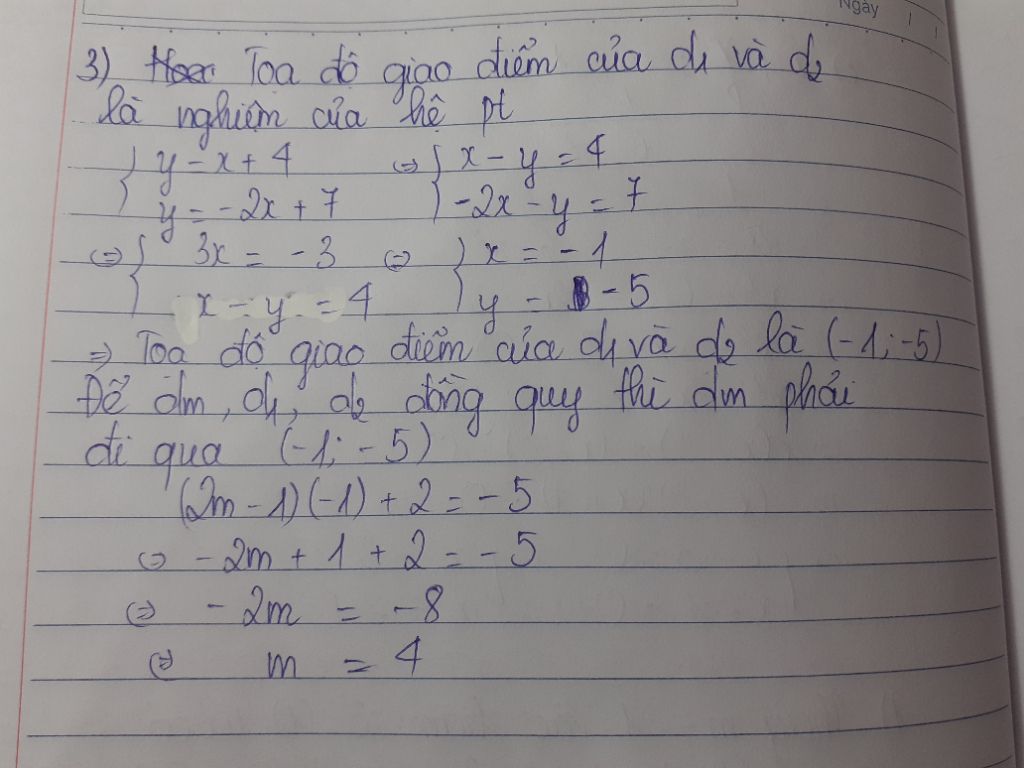 Ngày
3) Toạ độ giao điểm của d1 và d2
là nghiệm của hệ pt
{ y = x + 4 <=> { x - y = 4
{ y = -2x + 7 { -2x - y = 7
<=> { 3x = -3 <=> { x = -1
{ x - y = 4 { y = -5
=> Toạ độ giao điểm của d1 và d2 là (-1; -5)
Để dm, d1, d2 đồng quy thì dm phải
đi qua (-1; -5)
(2m - 1)(-1) + 2 = -5
<=> -2m + 1 + 2 = -5
<=> -2m = -8
<=> m = 4